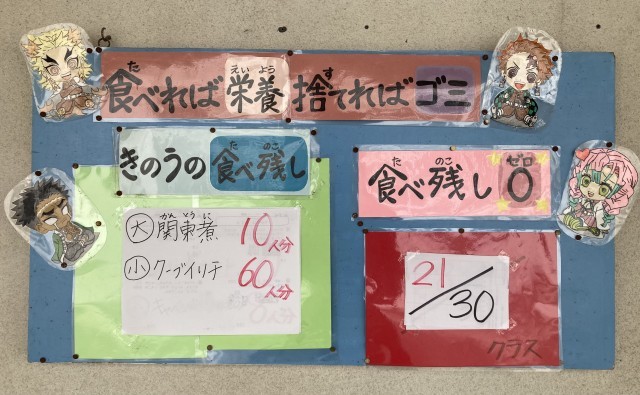 食べれば栄養 捨てればゴミ
きのうの食べ残し
大 関東煮 10人分
小 クーブイリチ 60人分
食べ残し0
21/30
クラス